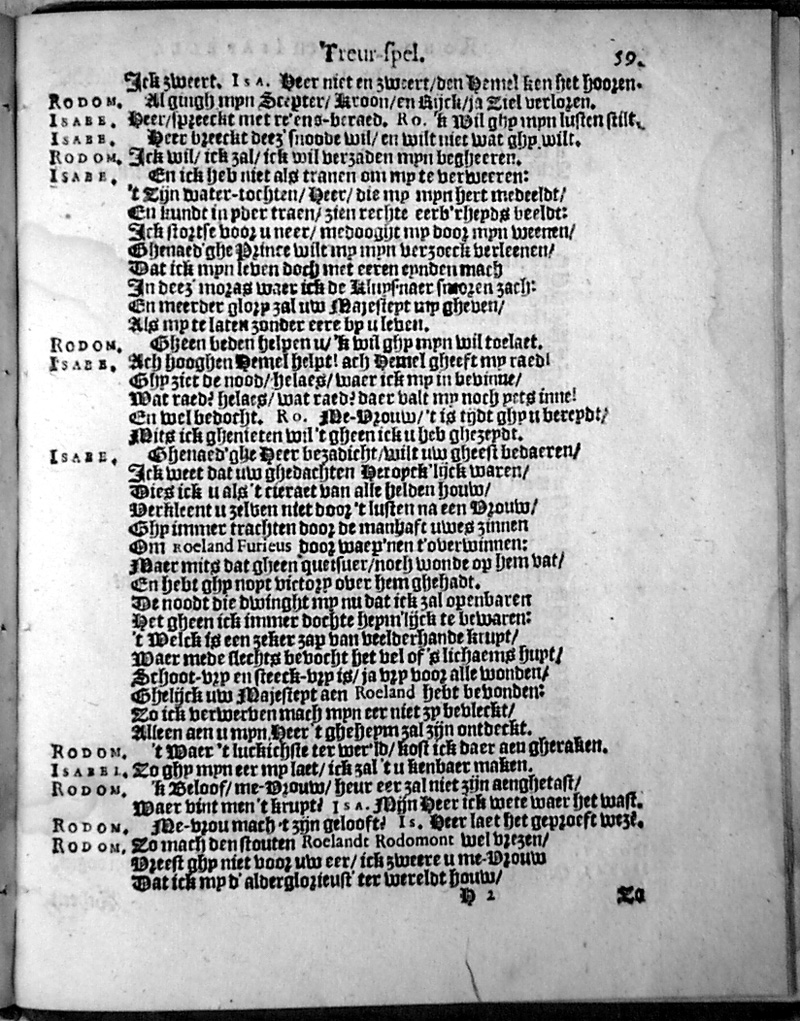 Treur-spel. 59.
Ick zweert. ISA. Heer niet en zweert/den Hemel ken het hooren.
RODOM. Al gingh mijn Scepter/ Kroon/en Rijck/ja Ziel verloren.
ISABE. Heer/spreeckt met re'ens-beraed. RO. 'k Wil ghy mijn lusten stilt.
ISABE. Heer breeckt deez' snoode wil/ en wilt niet wat ghy wilt.
RODOM. Ick wil/ ick zal/ ick wil verzaden mijn begheeren.
ISABE. En ick heb niet als tranen om my te verweeren:
't Zijn water-tochten/ Heer/ die my mijn hert medeeldt/
En kundt in yder traen/ zien rechte eerb'rheyds beeldt:
Ick stortse voor u neer/ medooght my door mijn weenen/
Ghenaed'ghe Prince wilt my mijn verzoeck verleenen/
Dat ick mijn leven doch met eeren eynden mach
In deez' moras waer ick de Kluys'naer smoren zach:
En meerder glory zal uw Majesteyt uyt gheven/
Als my te laten zonder eere by u leven.
RODOM. Gheen beden helpen u/ 'k wil ghy mijn wil toelaet.
ISABE. Ach hooghen Hemel helpt! ach Hemel gheeft my raed!
Ghy ziet de nood/ helaes/ waer ick my in bevinne/
Wat raed? helaes/ wat raed? daer valt my noch yets inne!
En wel bedocht. RO. Me-Vrouw/ 't is tydt ghy u bereydt/
Mits ick ghenieten wil 't gheen ick u heb ghezeydt.
ISABE. Ghenaed'ghe Heer bezadicht/wilt uw gheest bedaeren/
Ick weet dat uw ghedachten Heroyck'lijck waren/
Dies ick u als 't cieraet van alle helden houw/
Verkleent u zelven niet door 't lusten na een Vrouw/
Ghy immer trachten door de manhaft uwes zinnen
Om Roeland Furieus door waep'nen t'overwinnen:
Maer mits dat gheen quetsuer/noch wonde op hem vat/
En hebt ghy noyt victory over hem ghehadt.
De noodt die dwinght my nu dat ick zal openbaren
Het gheen ick immer dochte heym'lijck te bewaren:
't Welck is een zeker zap van veelderhande kruyt/
Waer mede slechts bevocht het vel of 's lichaems huyt/
Schoot-vry en steeck-vry is/ ja vry voor alle wonden/
Ghelijck uw Majesteyt aen Roeland hebt bevonden:
Zo ick verwerven mach mijn eer niet zy bevleckt/
Alleen aen u mijn Heer 't gheheym zal zijn ontdeckt.
RODOM. 't Waer 't luckichste ter wer'ld/ kost ick daer aen gheraken.
ISABEL. Zo ghy mijn eer my laet/ ick zal 't u kenbaer maken.
RODOM. 'k Beloof/ me-Vrouw/ heur eer zal niet zijn aenghetast/
Waer vint men 't kruyt? ISA. Mijn Heer ick wete waer het wast.
RODOM. Me-vrou mach 't zijn gelooft? IS. Heer laet het geproeft weze.
RODOM. Zo mach den stouten Roelandt Rodomont wel vrezen/
Vreest ghy niet voor uw eer/ ick zweere u me-Vrouw
Dat ick my d'alderglorieust' ter wereldt houw/
H 2 Zo